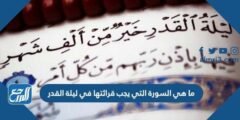 لَيْلَةُ الْقَدْرِ خَيْرٌ مِّنْ أَلْفِ شَهْرٍ
بِإِذْنِ رَبِّهِم مِّن كُلِّ أَمْرٍ
ما هي السورة التي يجب قرائتها في ليلة القدر